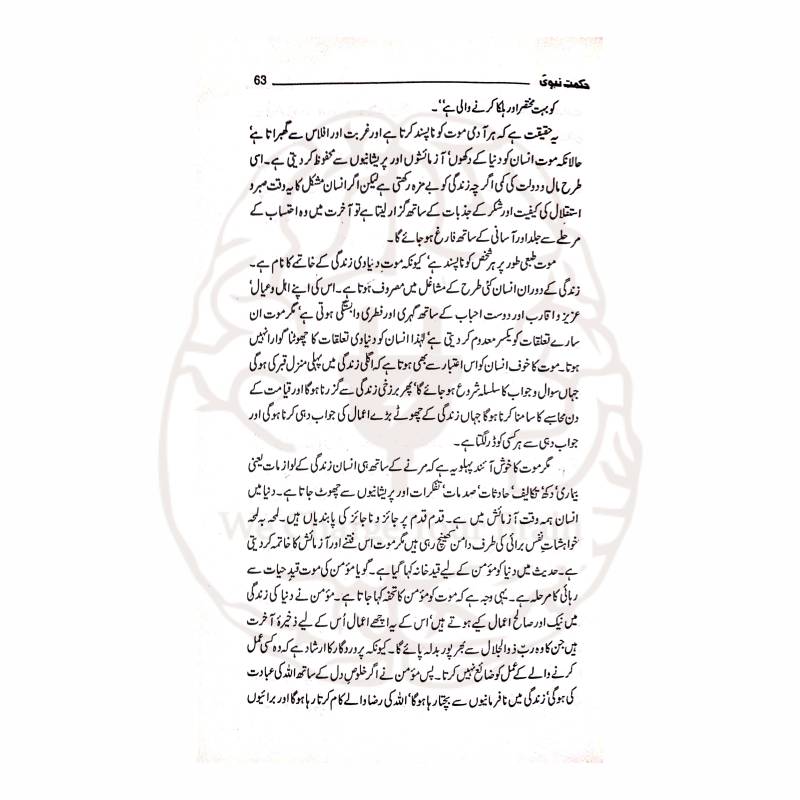 حکمت نبویؐ 63
کو بہت مختصر اور ہلکا کرنے والی ہے‘‘۔
یہ حقیقت ہے کہ ہر آدمی موت کو ناپسند کرتا ہے اور غربت اور افلاس سے گھبراتا ہے‘
حالانکہ موت انسان کو دنیا کے دکھوں‘ آزمائشوں اور پریشانیوں سے محفوظ کر دیتی ہے۔ اسی
طرح مال و دولت کی کمی اگرچہ زندگی کو بے مزہ رکھتی ہے لیکن اگر انسان مشکل کا یہ وقت صبر و
استقلال کی کیفیت اور شکر کے جذبات کے ساتھ گزار لیتا ہے تو آخرت میں وہ احتساب کے
مرحلے سے جلد اور آسانی کے ساتھ فارغ ہو جائے گا۔
موت طبعی طور پر ہر شخص کو ناپسند ہے‘ کیونکہ موت دنیاوی زندگی کے خاتمے کا نام ہے۔
زندگی کے دوران انسان کئی طرح کے مشاغل میں مصروف ہوتا ہے۔ اس کی اپنے اہل و عیال‘
عزیز و اقارب اور دوست احباب کے ساتھ گہری اور فطری وابستگی ہوتی ہے‘ مگر موت ان
سارے تعلقات کو یکسر معدوم کر دیتی ہے‘ لہٰذا انسان کو دنیاوی تعلقات کا چھوٹنا گوارا نہیں
ہوتا۔ موت کا خوف انسان کو اس اعتبار سے بھی ہوتا ہے کہ اگلی زندگی میں پہلی منزل قبر کی ہو گی
جہاں سوال و جواب کا سلسلہ شروع ہو جائے گا‘ پھر برزخی زندگی سے گزرنا ہو گا اور قیامت کے
دن محاسبے کا سامنا کرنا ہو گا جہاں زندگی کے چھوٹے بڑے اعمال کی جواب دہی کرنا ہو گی اور
جواب دہی سے ہر کسی کو ڈر لگتا ہے۔
مگر موت کا خوش آئند پہلو یہ ہے کہ مرنے کے ساتھ ہی انسان زندگی کے لوازمات یعنی
بیماری‘ دکھ‘ تکالیف‘ حادثات‘ صدمات‘ تفکرات اور پریشانیوں سے چھوٹ جاتا ہے۔ دنیا میں
انسان ہمہ وقت آزمائش میں ہے۔ قدم قدم پر جائز و ناجائز کی پابندیاں ہیں۔ لمحہ بہ لمحہ
خواہشاتِ نفس برائی کی طرف دامن کھینچ رہی ہیں مگر موت اس فتنے اور آزمائش کا خاتمہ کر دیتی
ہے۔ حدیث میں دنیا کو مؤمن کے لیے قید خانہ کہا گیا ہے۔ گویا مؤمن کی موت قیدِ حیات سے
رہائی کا مرحلہ ہے۔ یہی وجہ ہے کہ موت کو مؤمن کا تحفہ کہا جاتا ہے۔ مؤمن نے دنیا کی زندگی
میں نیک اور صالح اعمال کیے ہوتے ہیں‘ اس کے یہ اچھے اعمال اُس کے لیے ذخیرۂ آخرت
ہیں جن کا وہ ربّ ذوالجلال سے بھرپور بدلہ پائے گا۔ کیونکہ پروردگار کا ارشاد ہے کہ وہ کسی عمل
کرنے والے کے عمل کو ضائع نہیں کرتا۔ پس مؤمن نے اگر خلوصِ دل کے ساتھ اللہ کی عبادت
کی ہو گی‘ زندگی میں نافرمانیوں سے بچتا رہا ہو گا‘ اللہ کی رضا والے کام کرتا رہا ہو گا اور برائیوں